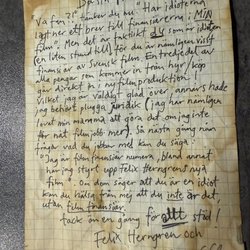 Va fan :" tänker du nu. Har idioterna
lagt ner ett brev till finansiärerna i MIN
film". Men det är faktiskt du som är idioten
(en liten stund till) för du är nämligen visst
finansiär av Svensk film. En tredjedel av
alla pengar som kommer in från hyr/köp
går direkt in i ny filmproduktion!
Vilket jag är väldigt glad över, annars hade
jag behövt plugga juridik (jag har nämligen
lovat min mamma att göra det om jag inte
får nåt filmjobb mer). Så nästa gång nån
frågar vad du jobbar med kan du säga:
"Jag är filmfinansiär numera, bland annat
har jag styrt upp Felix Herngrens nya
film". Om dom säger att du är en idiot
kan du hälsa från mej att du inte är det,
utan film finansiär.
Tack än en gång för ditt stöd!
Felix Herngren och